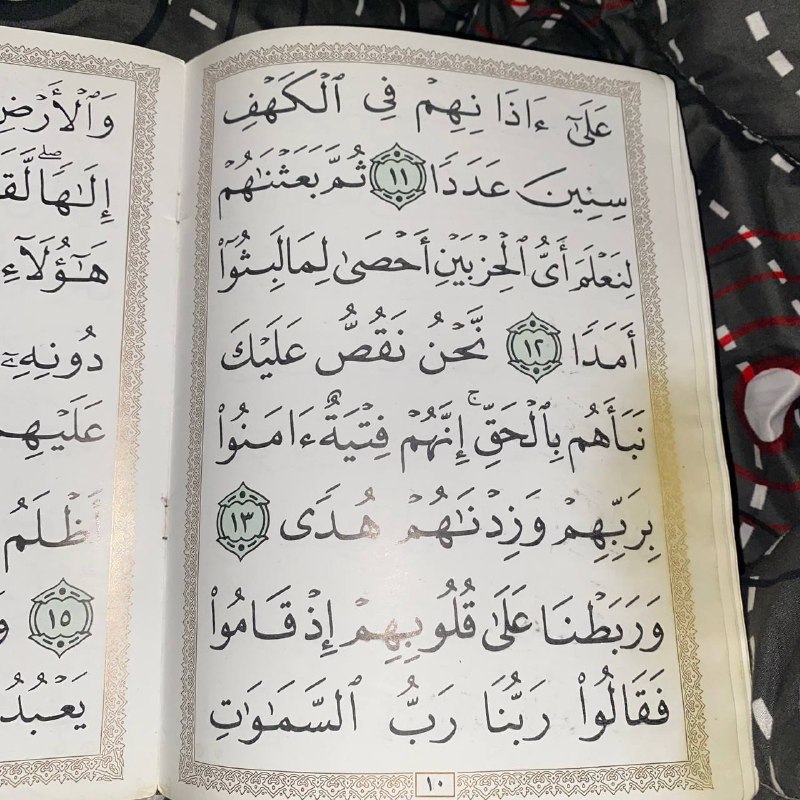 عَلَىٰٓ ءَاذَانِهِمْ فِى ٱلْكَهْفِ
سِنِينَ عَدَدًا ١١ ثُمَّ بَعَثْنَـٰهُمْ
لِنَعْلَمَ أَىُّ ٱلْحِزْبَيْنِ أَحْصَىٰ لِمَا لَبِثُوٓا۟
أَمَدًا ١٢ نَّحْنُ نَقُصُّ عَلَيْكَ
نَبَأَهُم بِٱلْحَقِّ ۚ إِنَّهُمْ فِتْيَةٌ ءَامَنُوا۟
بِرَبِّهِمْ وَزِدْنَـٰهُمْ هُدًى ١٣
وَرَبَطْنَا عَلَىٰ قُلُوبِهِمْ إِذْ قَامُوا۟
فَقَالُوا۟ رَبُّنَا رَبُّ ٱلسَّمَـٰوَٰتِ
١٠
وَٱلْأَرْضِ
إِلَـٰهًا ۖ
هَـٰٓؤُلَآءِ
دُونِهِۦٓ
عَلَيْهِم
أَظْلَمُ
١٥